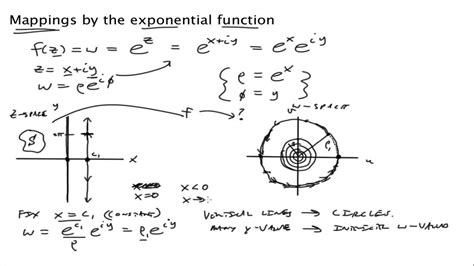 Mappings by the exponential function
f(z) = w = e^z = e^{x+iy} = e^x e^{iy}
z = x+iy
w = ρe^{iφ}
{ ρ = e^x
φ = y }
z-space y
f
?
v w-space
S
2π
c₁
x
ρ₁
u
x<0
x=0
x→
Fix x = c₁ (constant)
w = e^{c₁} e^{iy} = ρ₁e^{iy}
ρ
Vertical lines → circles.
many y-value → w-value